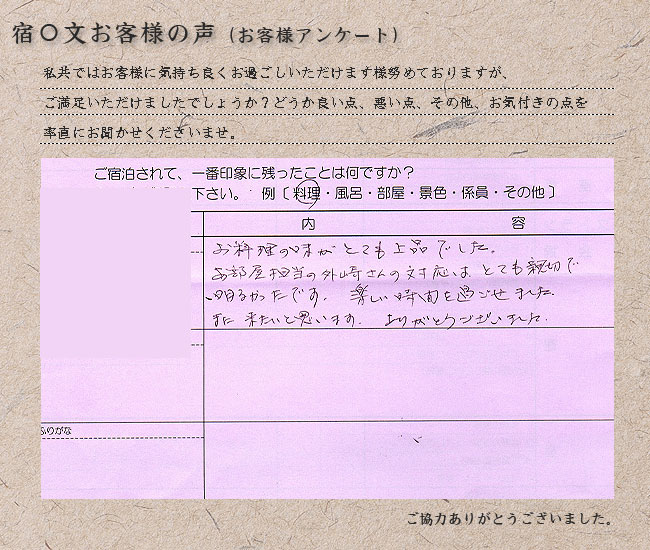 宿〇文お客様の声 (お客様アンケート)
私共ではお客様に気持ち良くお過ごしいただけます様努めておりますが、
ご満足いただけましたでしょうか？どうか良い点、悪い点、その他、お気付きの点を
率直にお聞かせくださいませ。
ご宿泊されて、一番印象に残ったことは何ですか？
下さい。 例〔料理・風呂・部屋・景色・係員・その他〕
内 容
お料理の味がとても上品でした。
お部屋担当の外崎さんの対応は とても親切で
明るかったです。 楽しい時間を過ごせました
また 来たいと思います。 ありがとうございました.
ふりがな
ご協力ありがとうございました。